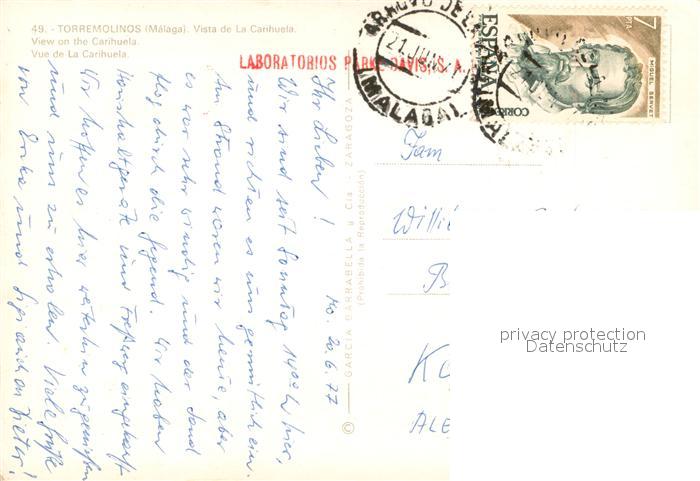 49. - TORREMOLINOS (Málaga). Vista de La Carihuela.
View on the Carihuela.
Vue de La Carihuela.
LABORATORIOS PARKE DAVIS, S. A.
21 JUN
(MALAGA)
7 PTA
ESPAÑA
CORREOS
MIGUEL SERVET
Mo. 20.6.77
Ihr Lieben!
Wir sind seit Sonntag 14 00 h hier,
und richten es uns gemütlich ein.
Am Strand waren wir heute, aber
es war sehr windig und der Sand
flog durch die Gegend. Wir haben
Haushaltgeräte und eingekauft
Wir hoffen es hier weiterhin zu genießen
und uns zu erholen. Viele Grüße
von Erika und Dieter!
© GARCIA GARRABELLA y Cía. - ZARAGOZA
(Prohibida la Reproducción)
Fam
Willi
B
KO
ALE
privacy protection
Datenschutz